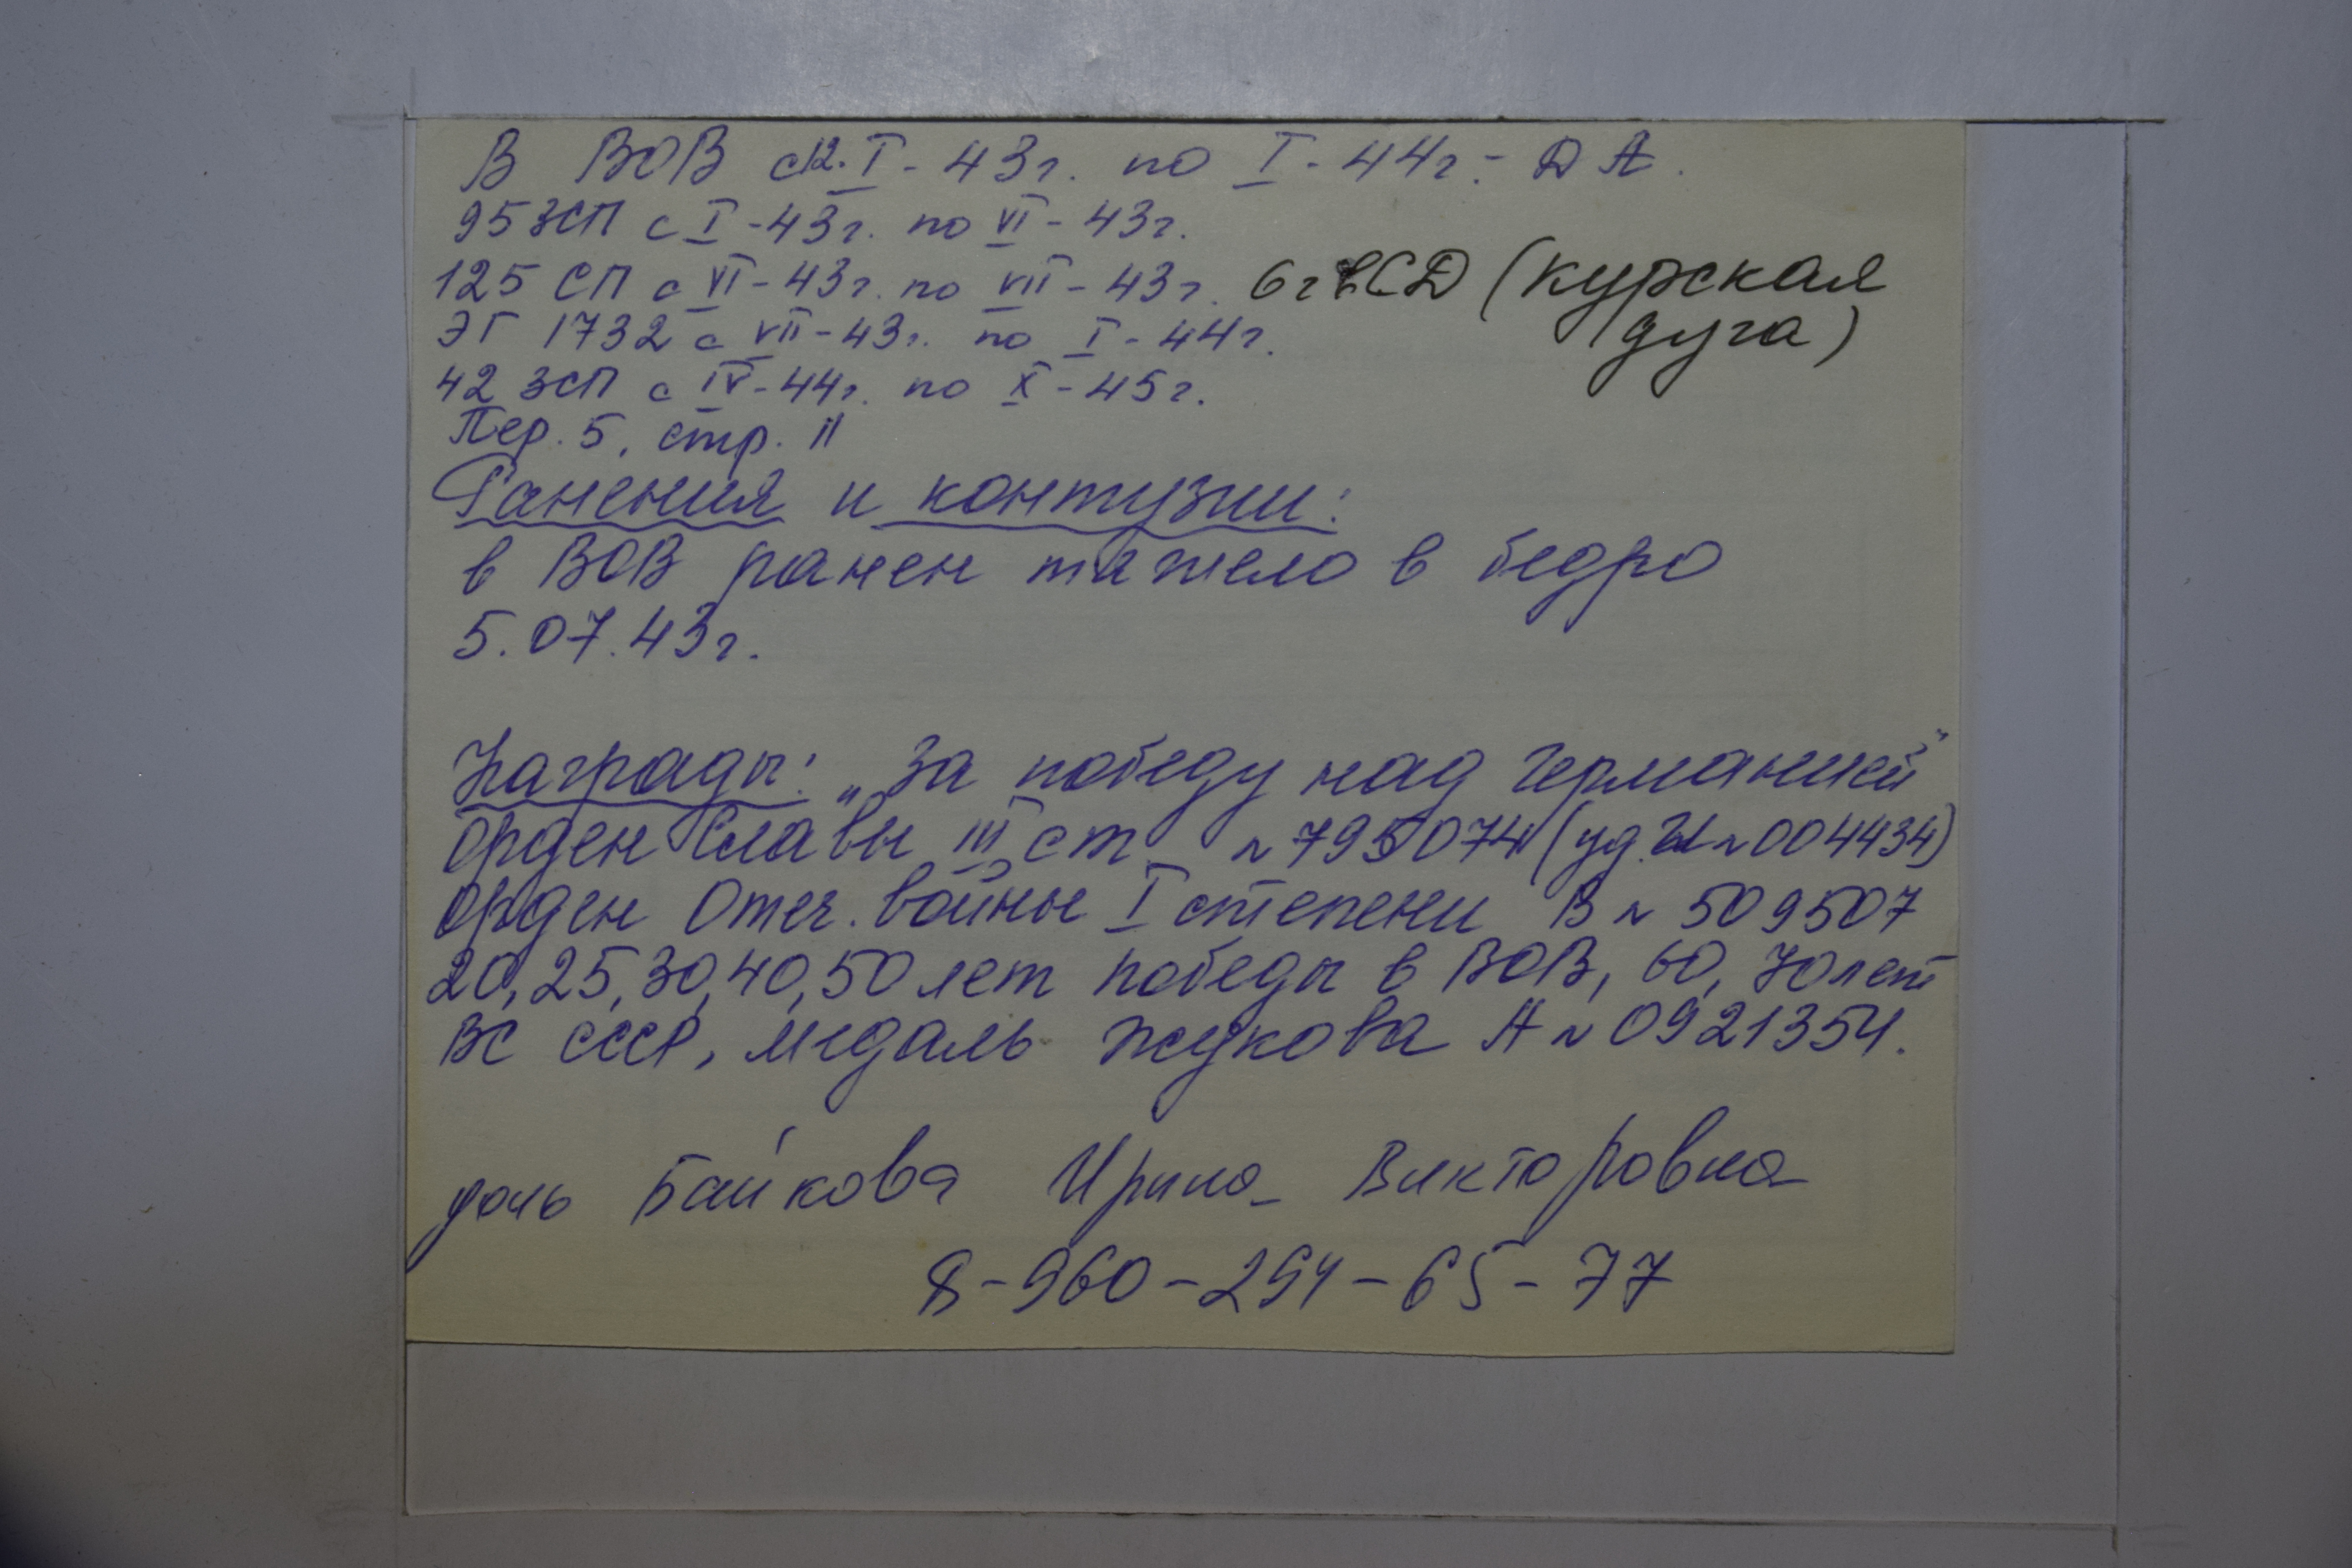 В ВОВ с 12.I-43г. по I-44г. - ДА.
95 ЗСП с I-43г. по VI-43г.
125 СП с VI-43г. по VII-43г. 6 гвСД (курская
дуга)
ЭГ 1732 с VII-43г. по I-44г.
42 ЗСП с IV-44г. по X-45г.
Пер. 5, стр. 11
Ранения и контузии:
в ВОВ ранен тяжело в бедро
5.07.43г.
Награды: „За победу над Германией"
Орден Славы III ст. № 795074 (уд. № 004434)
Орден Отеч. войны I степени В № 509507
20, 25, 30, 40, 50 лет победы в ВОВ, 60, 70 лет
ВС СССР, медаль Жукова А № 0921354.
дочь Байкова Ирина Викторовна
8-960-254-65-77